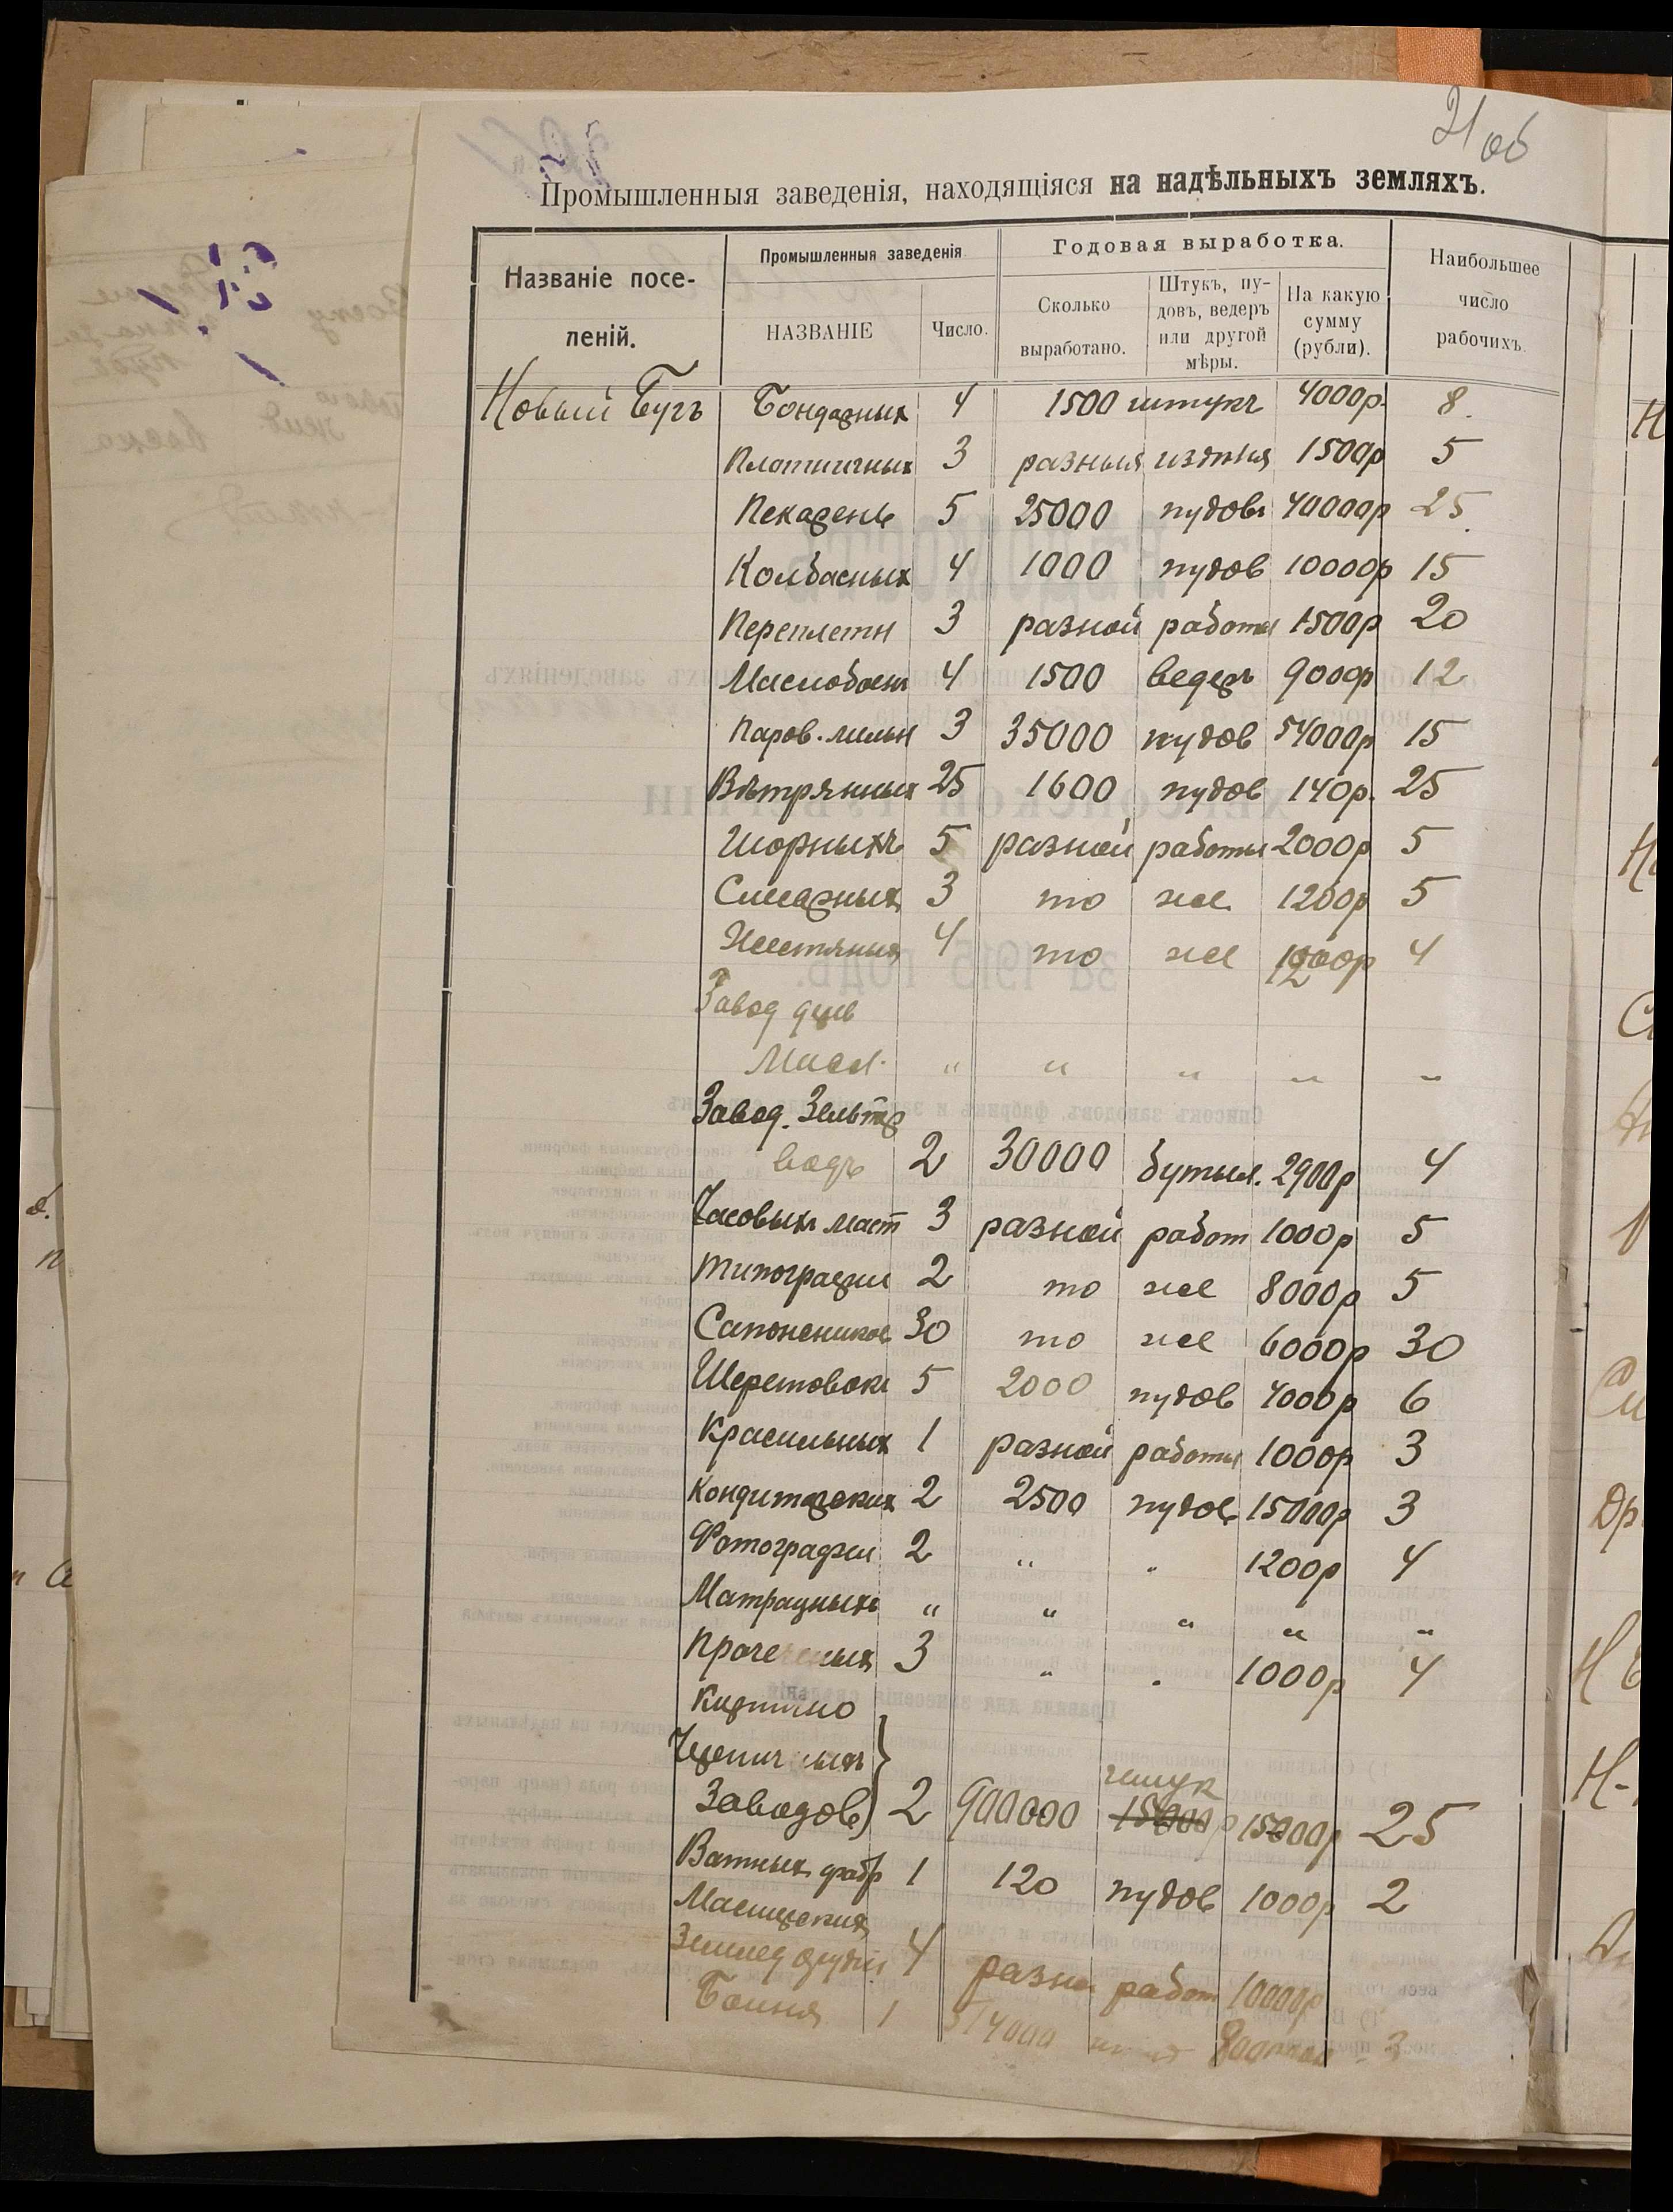 21 об
Промышленныя заведенія, находящіяся на надѣльныхъ земляхъ.
Названіе посе-
леній.
Промышленныя заведенія
НАЗВАНІЕ
Число.
Годовая выработка.
Сколько
выработано.
Штукъ, пу-
довъ, ведеръ
или другой
мѣры.
На какую
сумму
(рубли).
Наибольшее
число
рабочихъ.
Новый Бугъ Бондарных 4 1500 штукъ 4000р. 8.
Плотничных 3 разныя издѣлія 1500р 5
Пекарень 5 25000 пудовъ 40000р 25
Колбасных 4 1000 пудов 10000р 15
Переплетн 3 разной работы 1500р 20
Маслобоен 4 1500 ведеръ 9000р 12
Паров. мельн 3 35000 пудов 54000р 15
Вѣтрянных 25 1600 пудов 140р. 25
Шорныхъ 5 разной работы 2000р 5
Слесарных 3 то же 1200р 5
Жестяных 4 то же 4
Завод
Масл. " " " " "
Завод. Зельтер
водъ 2 30000 бутыл. 2900р 4
Часовых маст 3 разной работ 1000р 5
Типографии 2 то же 8000р 5
Сапожников 30 то же 6000р 30
Шерстобоен 5 2000 пудов 4000р 6
Красильных 1 разной работы 1000р 3
Кондитерских 2 2500 пудов 15000р 3
Фотографии 2 " " 1200р 4
Матрацных " " " " "
3 " " 1000р 4
Кирпично
Черепичных }
штук
Заводов) 2 900000 15000р 15000р 25
Ватных фабр 1 120 пудов 1000р 2
Мастерских
Землед орудій 4 разн работ 10000р
Бойня 1 3